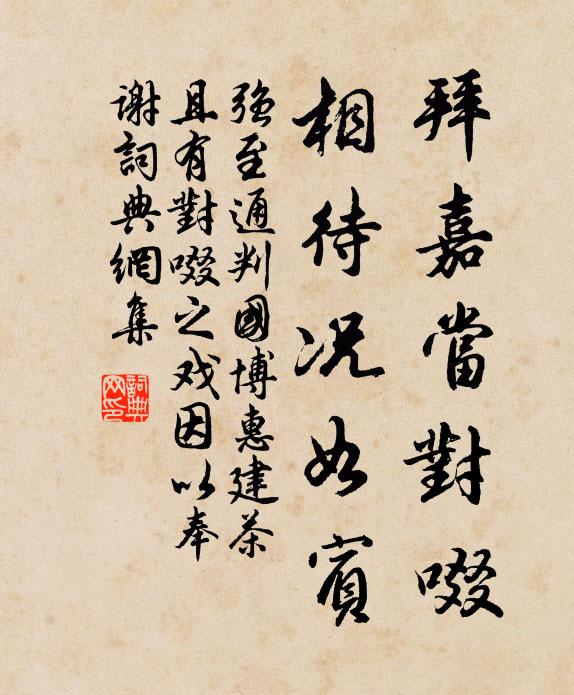 拜嘉當對啜
相待况如賓
強至通判國博惠建茶
且有對啜之戏因以奉
谢詞典網集
詞典网印